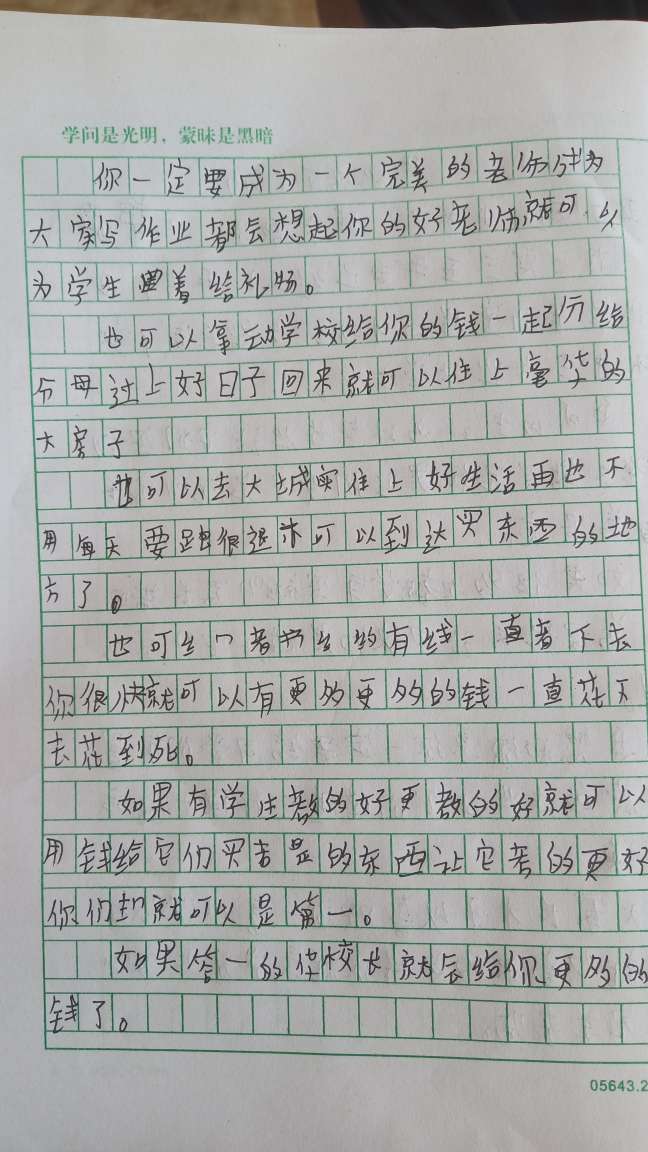 学问是光明，蒙昧是黑暗
你一定要成为一个完美的老师成为
大家写作业都会想起你的好老师就可以
为学生 着给礼物。
也可以拿动学校给你的钱一起分给
父母过上好日子回来就可以住上豪华的
大房子
也可以去大城 住上好生活再也不
用每天要 很 才可以到达买东西的地
方了。
也可 有钱一直着下去
你很快就可以有更多更多的钱一直花下
去花到死。
如果有学生教的好更教的好就可以
用钱给它们买 是的东西让它考的更好
你们 就可以是第一。
如果第一的 校长就会给你更多的
钱了。
05643.2